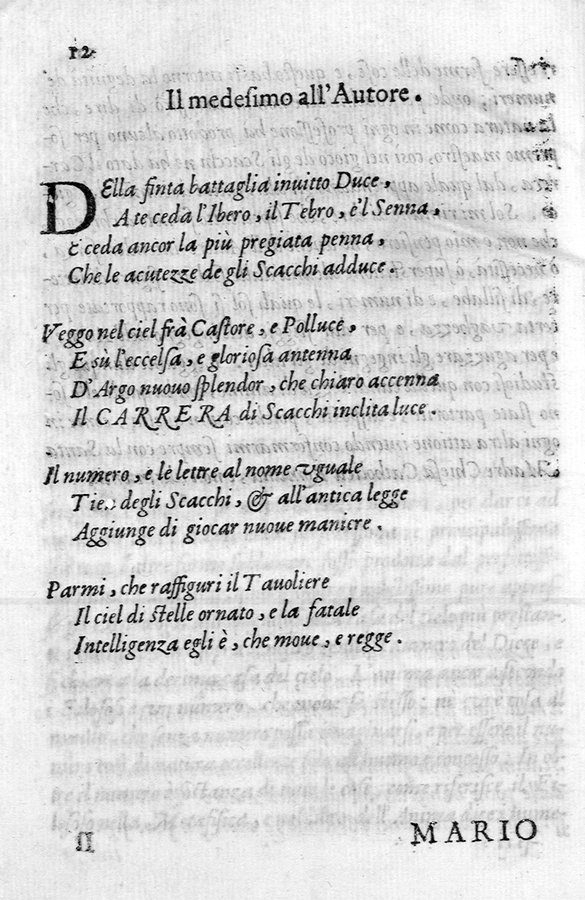 12
Il medeſimo all'Autore.
DElla finta battaglia inuitto Duce,
A te ceda l'Ibero, il Tebro, e'l Senna,
E ceda ancor la più pregiata penna,
Che le acutezze de gli Scacchi adduce.
Veggo nel ciel frà Caſtore, e Polluce,
E sù l'eccelſa, e glorioſa antenna
D'Argo nuouo ſplendor, che chiaro accenna
Il CARRERA di Scacchi inclita luce.
Il numero, e le lettre al nome vguale
Tien degli Scacchi, & all'antica legge
Aggiunge di giocar nuoue maniere.
Parmi, che raffiguri il Tauoliere
Il ciel di ſtelle ornato, e la fatale
Intelligenza egli è, che moue, e regge.
MARIO